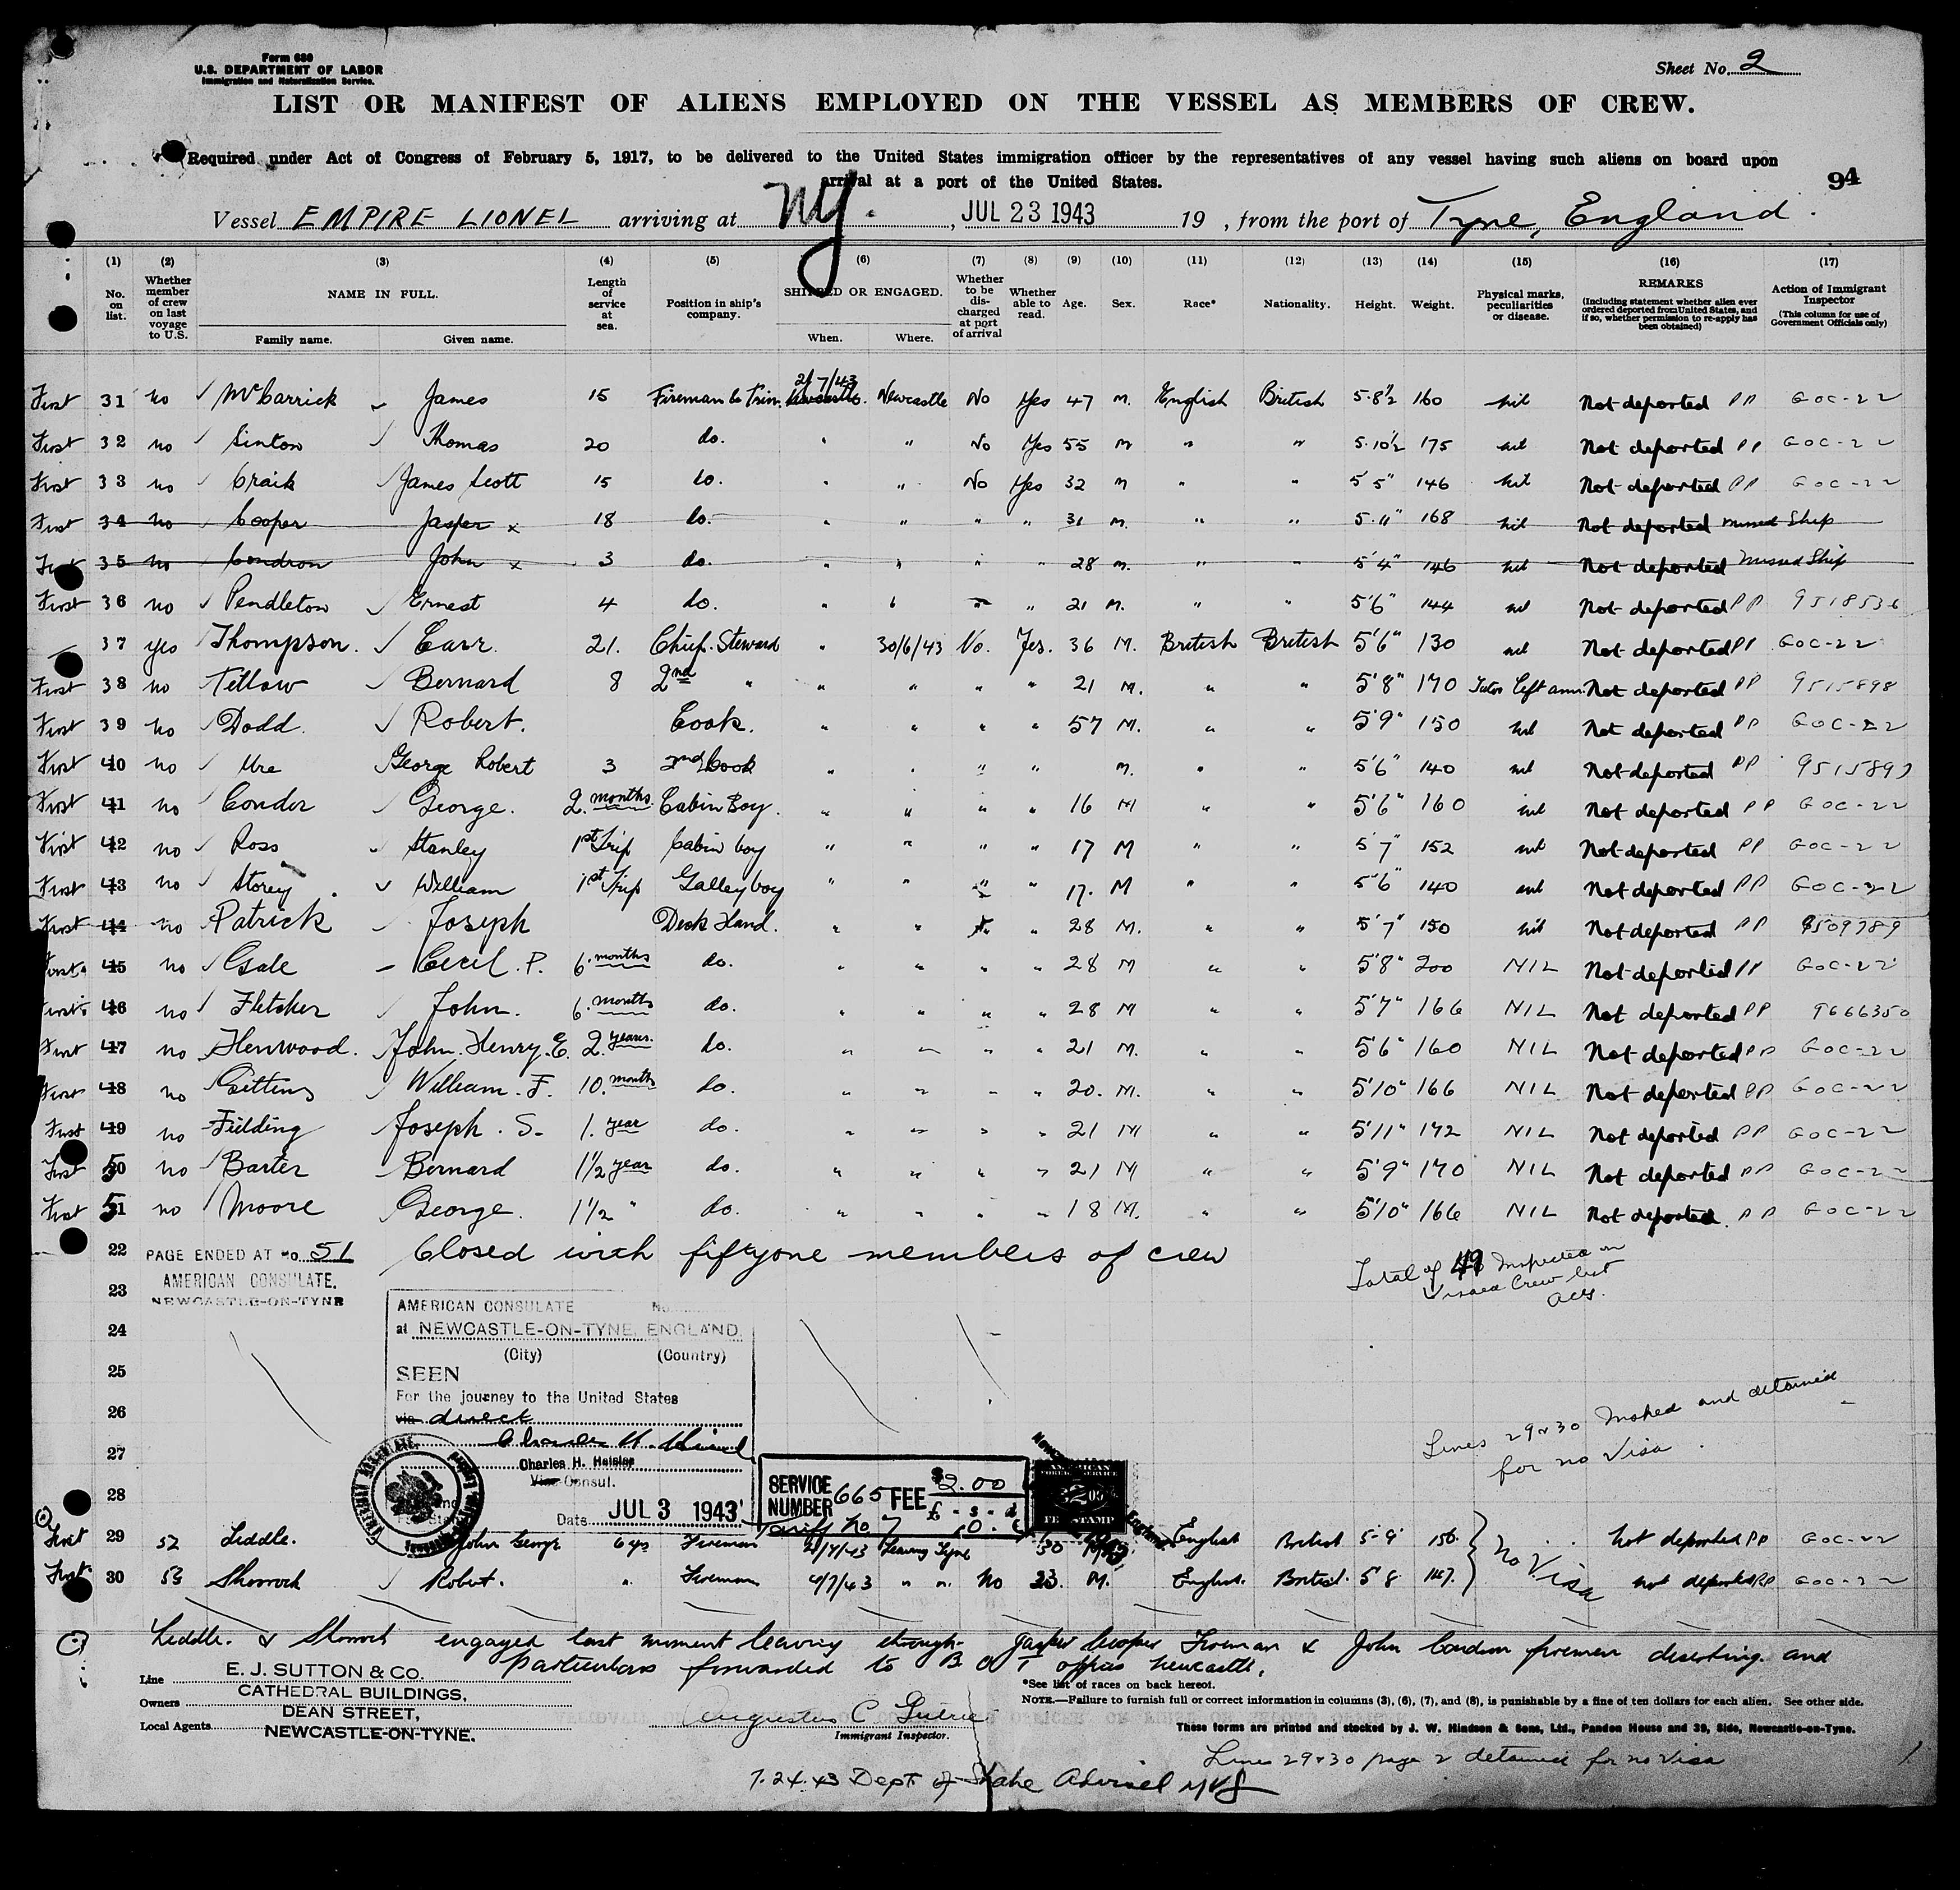 Form 680
U.S. DEPARTMENT OF LABOR
Immigration and Naturalization Service.
Sheet No. 2
LIST OR MANIFEST OF ALIENS EMPLOYED ON THE VESSEL AS MEMBERS OF CREW.
Required under Act of Congress of February 5, 1917, to be delivered to the United States immigration officer by the representatives of any vessel having such aliens on board upon
arrival at a port of the United States.
94
Vessel EMPIRE LIONEL arriving at NY. , JUL 23 1943 19 , from the port of Tyne, England.
(1) (2) (3) (4) (5) (6) (7) (8) (9) (10) (11) (12) (13) (14) (15) (16) (17)
No. on list. Whether member of crew on last voyage to U.S. NAME IN FULL. Family name. Given name. Length of service at sea. Position in ship's company. SHIPPED OR ENGAGED. When. Where. Whether to be discharged at port of arrival Whether able to read. Age. Sex. Race* Nationality. Height. Weight. Physical marks, peculiarities or disease. REMARKS (Including statement whether alien ever ordered deported from United States, and if so, whether permission to re-apply has been obtained) Action of Immigrant Inspector (This column for use of Government Officials only)
First 31 no McCarrick James 15 Fireman & Trim. 2/7/43 Newcastle No Yes 47 M. English British 5·8½ 160 nil Not deported PP GOC-22
First 32 no Sinton Thomas 20 do. " " No Yes 55 M " " 5·10½ 175 nil Not deported PP GOC-22
First 33 no Craik James Scott 15 do. " " No Yes 32 M " " 5 5" 146 nil Not deported PP GOC-22
First 34 no Cooper Jasper x 18 do. " " " " 31 M. " " 5·11" 168 nil Not deported missed Ship
First 35 no Condron John x 3 do. " " " " 28 M. " " 5'4" 146 nil Not deported Missed Ship
First 36 no Pendleton Ernest 4 do. " " " " 21 M. " " 5'6" 144 nil Not deported PP 9518536
37 yes Thompson. Carr. 21. Chief Steward " 30/6/43 No. Yes. 36 M. British British 5'6" 130 nil Not deported PP GOC-22
First 38 no Tellow Bernard 8 2nd " " " " " 21 M. " " 5'8" 170 Left arm. Not deported PP 9515898
First 39 no Dodd. Robert. Cook. " " " " 57 M. " " 5'9" 150 nil Not deported PP GOC-22
First 40 no Ure George Robert 3 2nd Cook " " " " M. " " 5'6" 140 nil Not deported PP
First 41 no Conder George. 2. months. Cabin Boy. " " " " 16 M " " 5'6" 160 nil Not deported PP GOC-22
First 42 no Ross Stanley 1st Trip Cabin boy " " " " 17 M " " 5 7" 152 nil Not deported PP GOC-22
First 43 no Storey William 1st Trip Galley boy " " " " 17. M " " 5'6" 140 nil Not deported PP GOC-22
First 44 no Patrick Joseph Deck Hand. " " " 28 M. " " 5'7" 150 nil Not deported PP 9509789
First 45 no Gale Cecil. P. 6. months do. " " " " 28 M " " 5'8" 200 NIL Not deported PP GOC-22
First 46 no Fletcher John. 6. months do. " " " " 28 M " " 5'7" 166 NIL Not deported PP 9666350
First 47 no Henwood. John. Henry. E. 2. years. do. " " " " 21 M. " " 5'6" 160 NIL Not deported PP GOC-22
First 48 no Gittins William. F. 10. months do. " " " " 20. M. " " 5'10" 166 NIL Not deported PP GOC-22
First 49 no Fielding Joseph. S. 1. year do. " " " " 21 M " " 5'11" 172 NIL Not deported PP GOC-22
First 50 no Barter Bernard 1½ year do. " " " " 21 M " " 5'9" 170 NIL Not deported PP GOC-22
First 51 no Moore George. 1½ " do. " " " " 18 M. " " 5'10" 166 NIL Not deported. PP GOC-22
22 PAGE ENDED AT No. 51 Closed with fiftyone members of crew
AMERICAN CONSULATE.
NEWCASTLE-ON-TYNE
Total of 49 Inspected on
Visaed Crew list
23
24
25
26
27
28
AMERICAN CONSULATE No.
at NEWCASTLE-ON-TYNE, ENGLAND.
(City) (Country)
SEEN
For the journey to the United States
via direct
Charles H. Heisler
Vice Consul.
Date JUL 3 1943
SERVICE NUMBER 665 FEE $2.00
Tariff No 7
Lines 29 & 30 and detained
for no Visa.
First 29 52 Liddle. John George 6 yrs Fireman Leaving Tyne 30 English British 5-9 150 not deported PP GOC-22
First 30 53 Shorrock Robert. " Fireman 4/7/43 " " No 23. M. English. British. 5'8 147. not deported PP GOC-22
no Visa
Liddle. & Shorrock engaged last moment leaving through Jasper Cooper Fireman & John Condron firemen deserting and
particulars forwarded to B O T offices Newcastle.
Line
Owners
Local Agents
E. J. SUTTON & CO.
CATHEDRAL BUILDINGS,
DEAN STREET,
NEWCASTLE-ON-TYNE.
Immigrant Inspector.
*See list of races on back hereof.
NOTE.—Failure to furnish full or correct information in columns (3), (6), (7), and (8), is punishable by a fine of ten dollars for each alien. See other side.
These forms are printed and stocked by J. W. Hindson & Sons, Ltd., Pandon House and 39, Side, Newcastle-on-Tyne.
Lines 29 & 30 page 2 detained for no Visa
7.24.43 Dept of State Advised